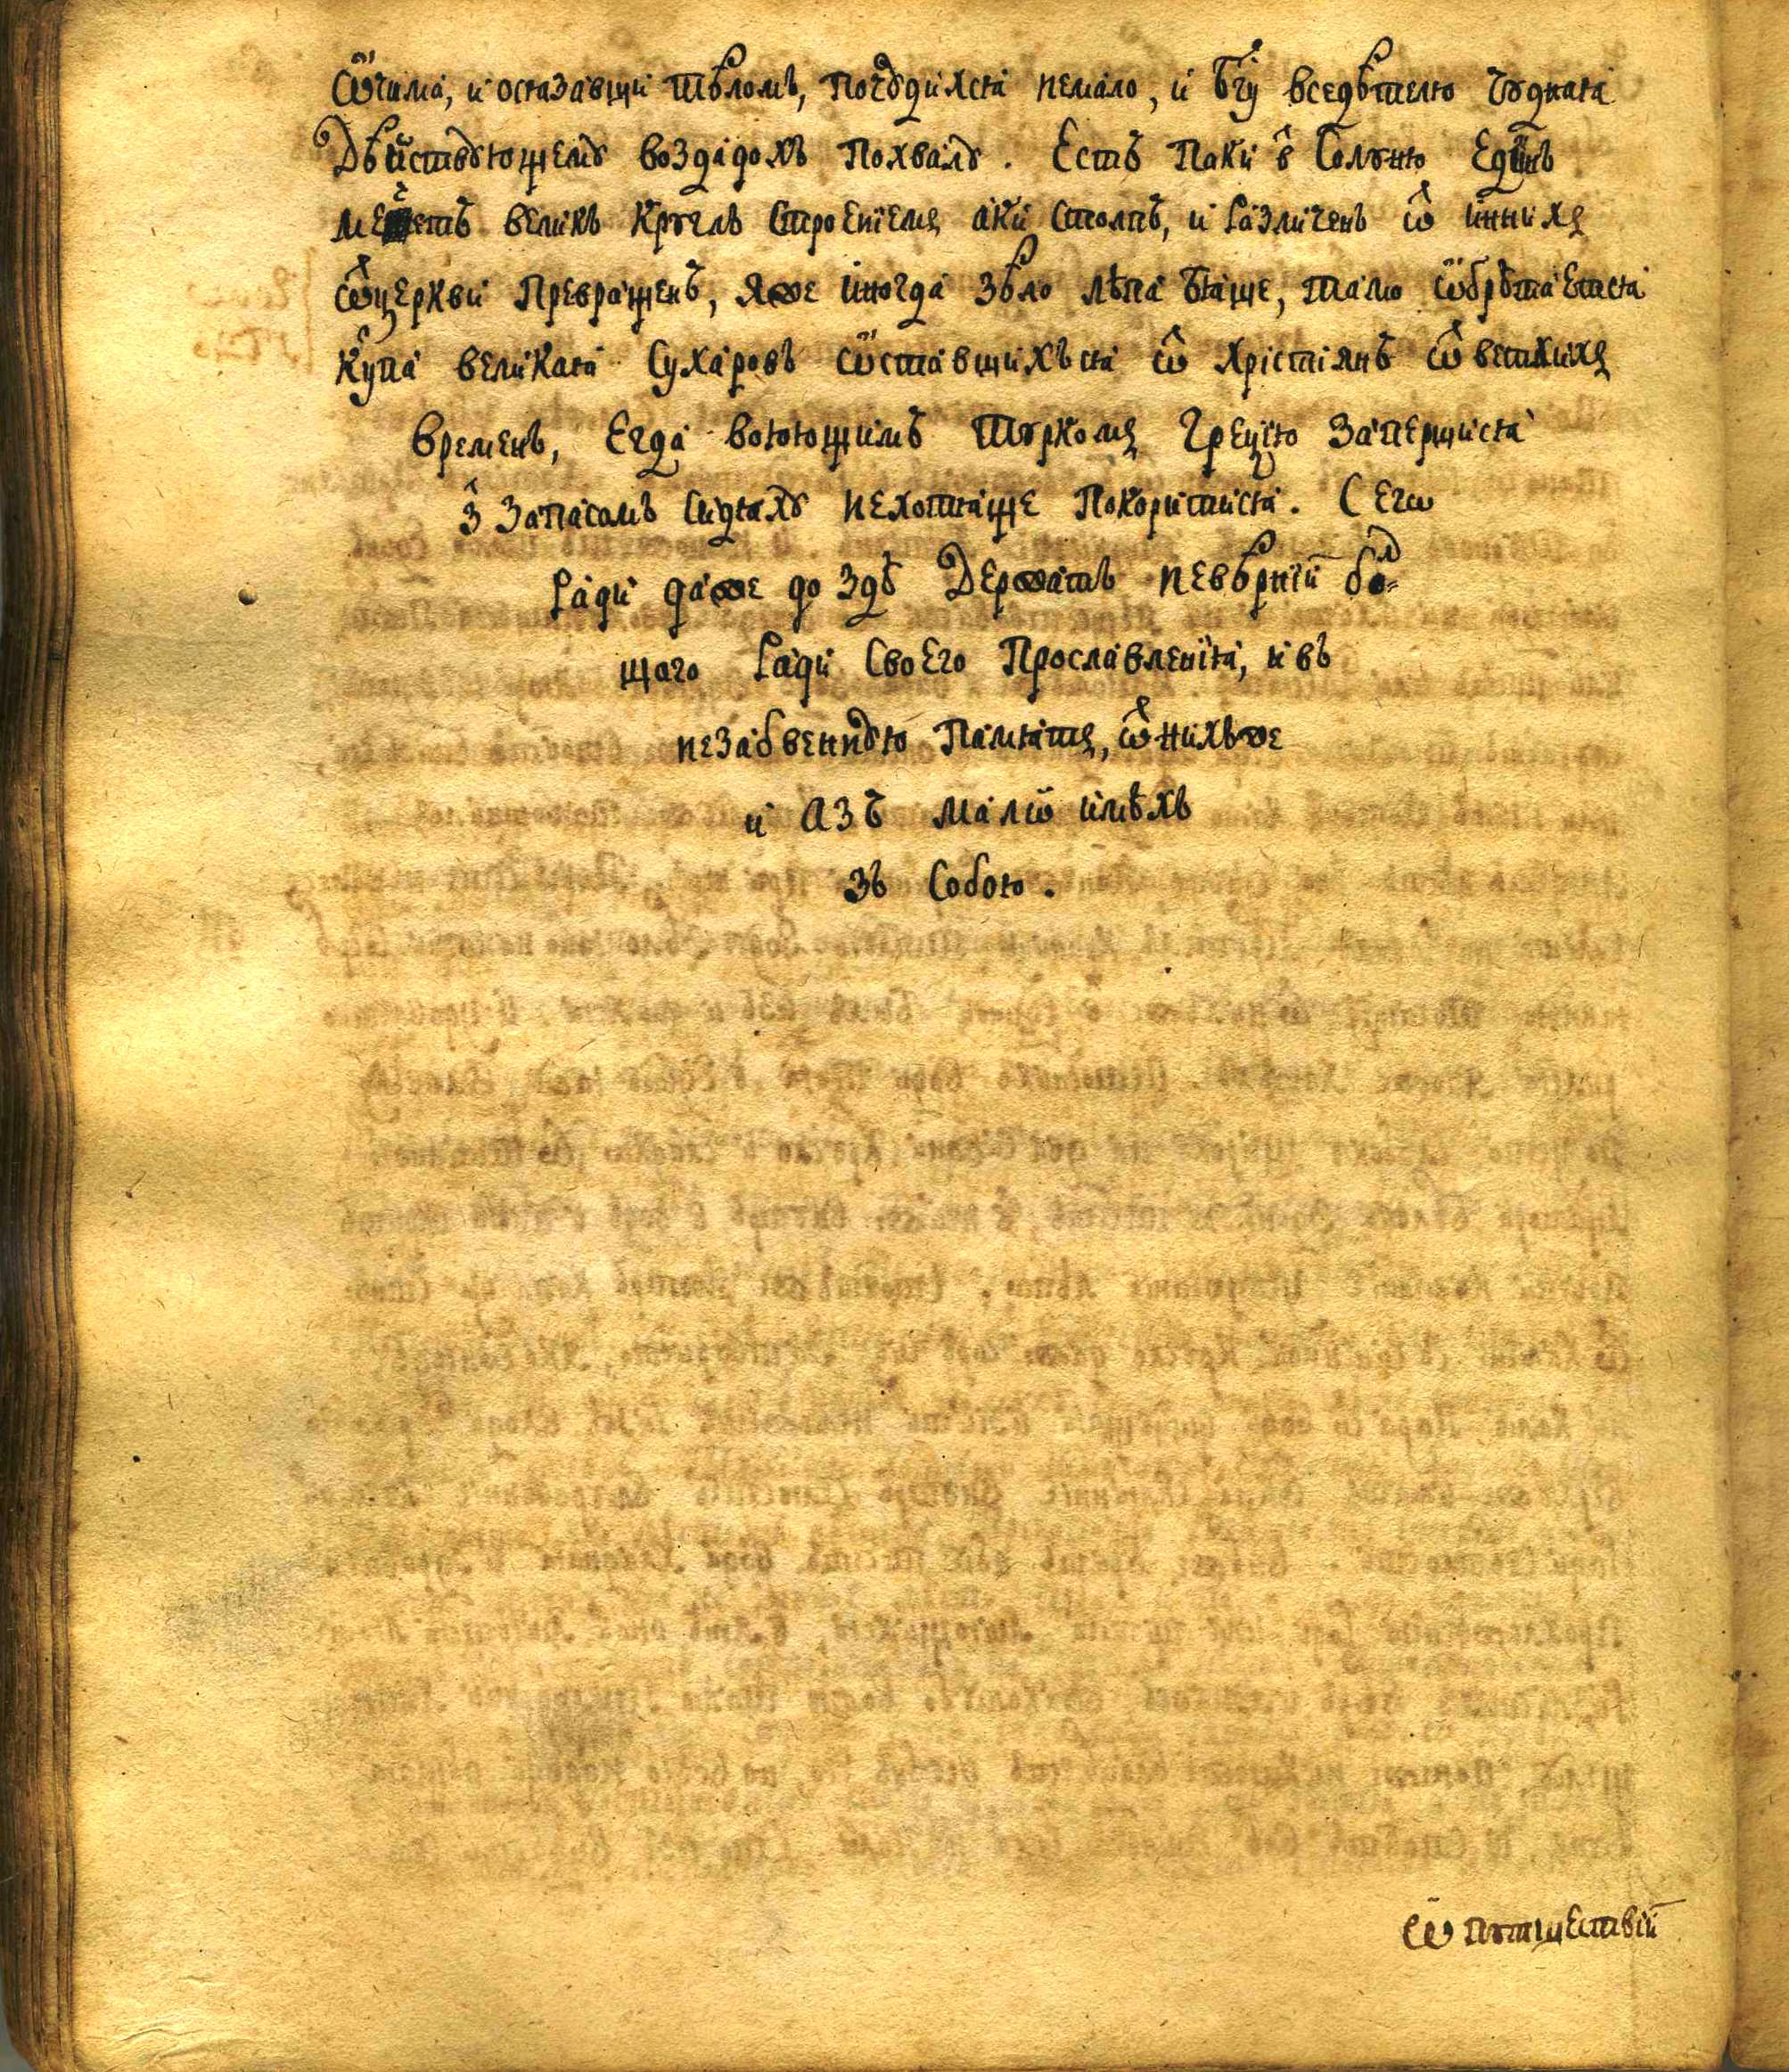 Ѡчима, и осязавши тѣломъ, почꙋдихся немало, и Бг҃у вседѣтелю чꙋдная
Дѣйствꙋющемꙋ воздадохъ похвалꙋ. Есть паки в̾ Солꙋню един̾ъ
мечетъ великъ крꙋглъ строенїемъ аки столпъ, и различенъ ѿ инихъ
ѿ церкви превращенъ, яже иногда зѣло лѣпа бяше, тамо ѡбрѣтается
купа великая Сухаровъ ѡставшихъся ѿ Хрїстїянъ ѿ ветхихъ
временъ, егда воюющимъ Тꙋркомъ Грецїю запершися
з̾ запасомъ сидяхꙋ не хотяще покоритися. Сегѡ
ради даже до здѣ держатъ невѣрнїи бо-
щаго ради своего прославленїя, и въ
незабвеннꙋю памятъ, ѿ нихъже
и азъ малѡ имѣхъ
зъ собою.
Ѡ пꙋтшествїи